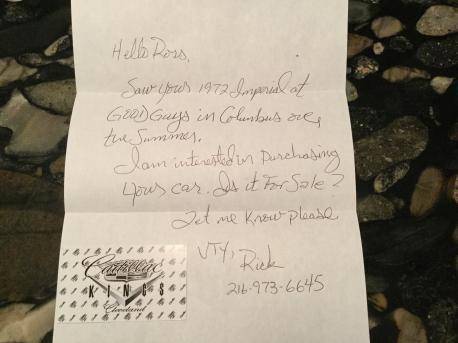 Hello Ross,
Saw your 1972 Imperial at
GOODGuys in Columbus over
the Summer.
I am interested in Purchasing
your car. Is it For Sale?
Let me Know please
VTY,
Rick
216-973-6645
Cadillac
KINGS
Cleveland